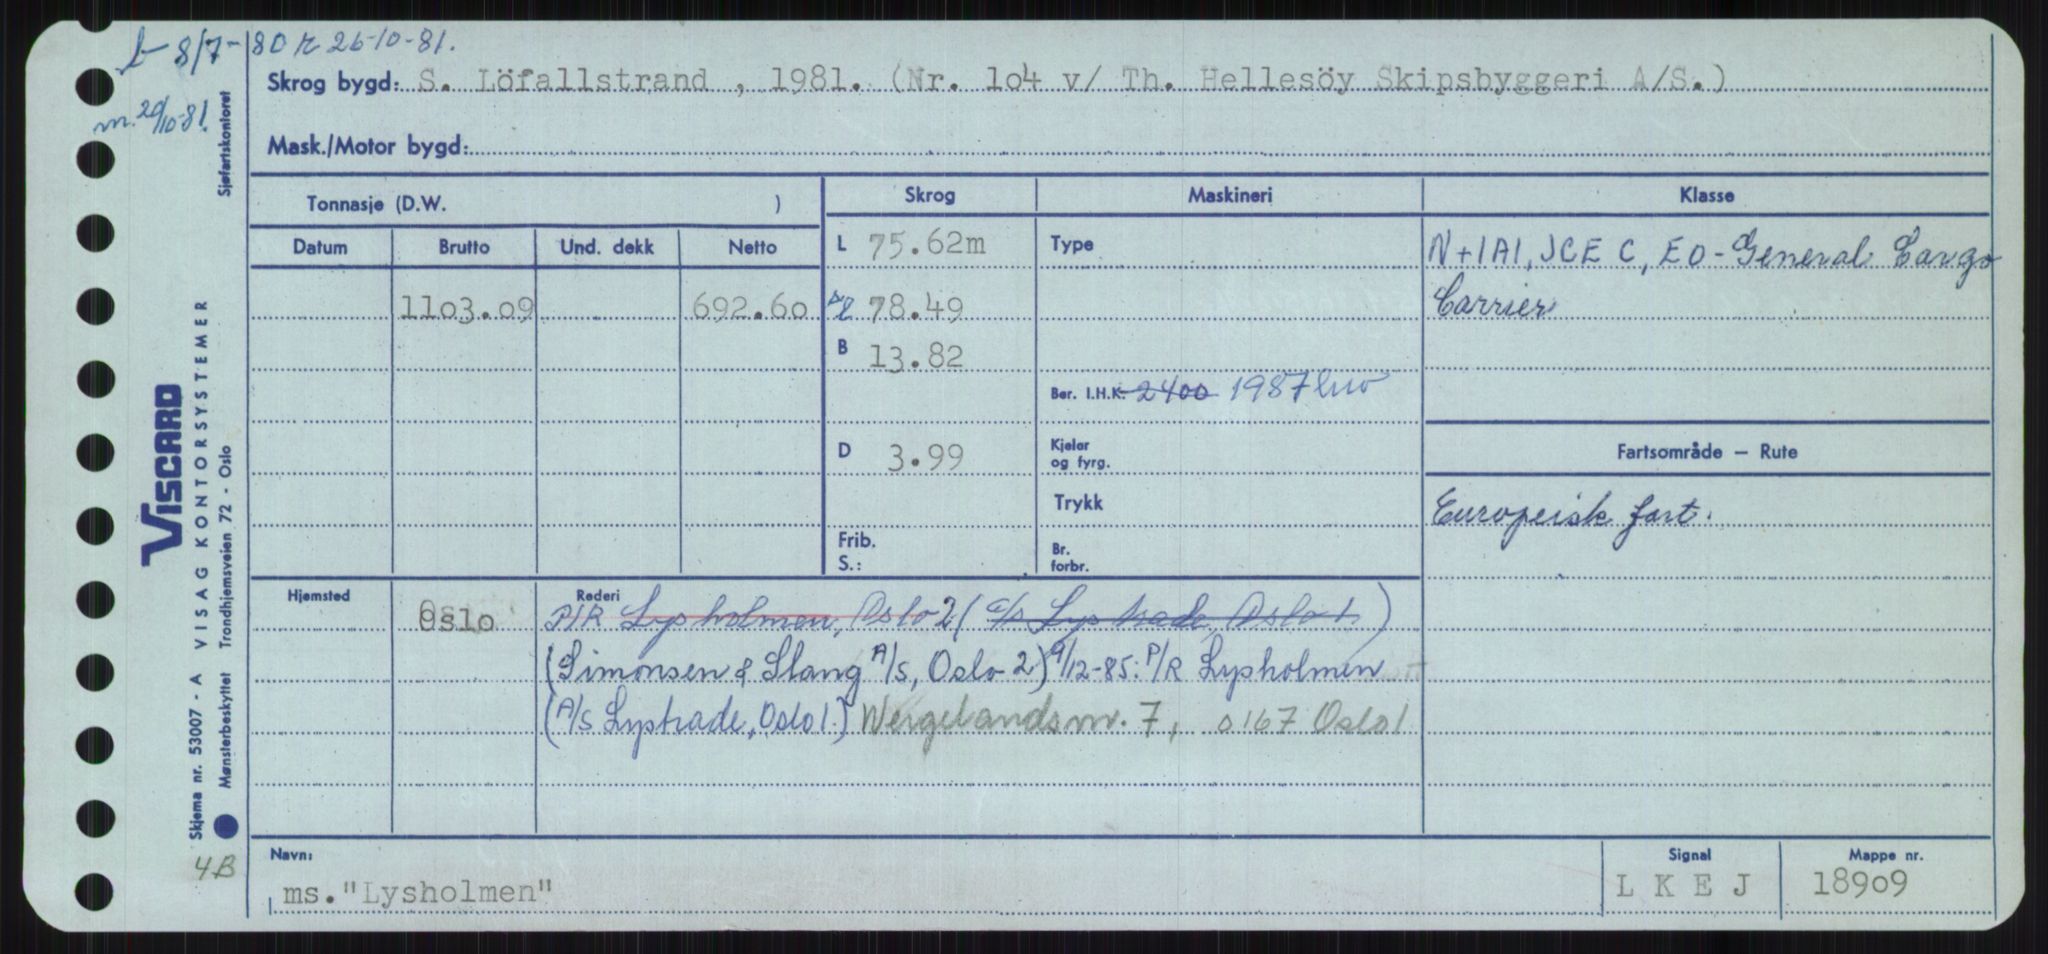 b 8/7-80 r 26-10-81.
m. 20/10-81.
Skrog bygd: S. Löfallstrand , 1981. (Nr. 1o4 v/ Th. Hellesöy Skipsbyggeri A/S.)
Mask./Motor bygd:
Sjøfartskontoret
Tonnasje (D.W. )
Skrog Maskineri Klasse
Datum Brutto Und. dekk Netto
L 75.62m Type N+1A1, ICE C, EO - General Cargo
11o3.o9 692.6o 78.49 Carrier
B 13.82
Ber. I.H.K. 2400 1987 kw
D 3.99 Kjeler og fyrg.
Fartsområde — Rute
Trykk
Europeisk fart.
Frib.
S.:
Br. forbr.
Hjemsted Oslo Rederi P/R Lysholmen, Oslo 2 (A/S Lystrade, Oslo 1.)
(Simonsen & Slang A/S, Oslo 2) 9/12-85: P/R Lysholmen
(A/S Lystrade, Oslo 1.) Wergelandsv. 7, 0167 Oslo 1
Navn:
ms."Lysholmen"
Signal
L K E J
Mappe nr.
189o9
VISCARD
VISAG KONTORSYSTEMER
Skjema nr. 53007 - A
Mønsterbeskyttet Trondhjemsveien 72 - Oslo
4B